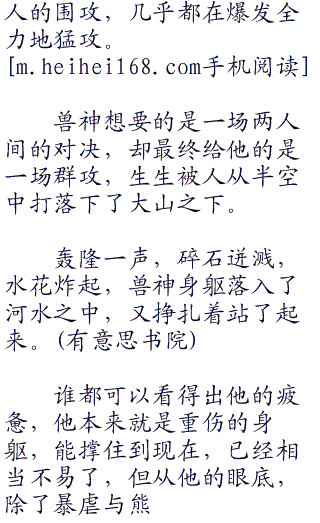 人的围攻，几乎都在爆发全
力地猛攻。
[m.heihei168.com手机阅读]
兽神想要的是一场两人
间的对决，却最终给他的是
一场群攻，生生被人从半空
中打落下了大山之下。
轰隆一声，碎石迸溅，
水花炸起，兽神身躯落入了
河水之中，又挣扎着站了起
来。(有意思书院)
谁都可以看得出他的疲
惫，他本来就是重伤的身
躯，能撑住到现在，已经相
当不易了，但从他的眼底，
除了暴虐与熊